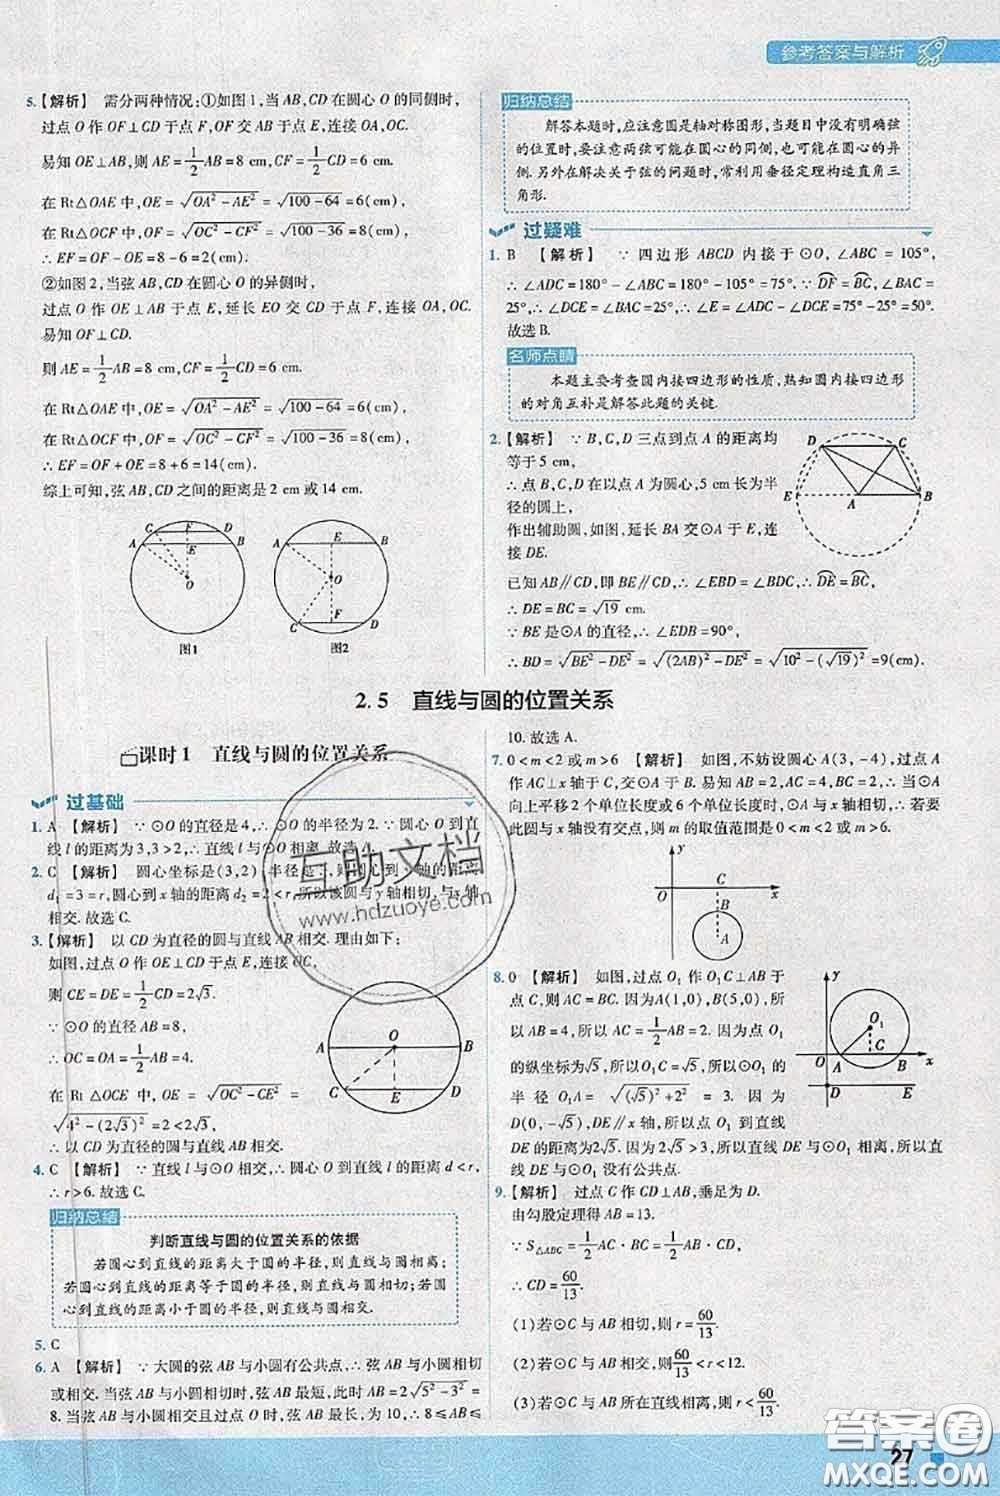 参考答案与解析
5.【解析】 需分两种情况:①如图1,当AB,CD在圆心O的同侧时,
过点O作OF⊥CD于点F,OF交AB于点E,连接OA,OC.
易知OE⊥AB,则AE=1/2AB=8 cm,CF=1/2CD=6 cm.
在Rt△OAE中,OE=√(OA²-AE²)=√(100-64)=6(cm),
在Rt△OCF中,OF=√(OC²-CF²)=√(100-36)=8(cm),
∴EF=OF-OE=8-6=2(cm).
②如图2,当弦AB,CD在圆心O的异侧时,
过点O作OE⊥AB于点E,延长EO交CD于点F,连接OA,OC.
易知OF⊥CD,
则AE=1/2AB=8 cm,CF=1/2CD=6 cm.
在Rt△OAE中,OE=√(OA²-AE²)=√(100-64)=6(cm),
在Rt△OCF中,OF=√(OC²-CF²)=√(100-36)=8(cm),
∴EF=OF+OE=8+6=14(cm).
综上可知,弦AB,CD之间的距离是2 cm或14 cm.
C F D
A E B
O
图1
A E B
O
C F D
图2
归纳总结
解答本题时,应注意圆是轴对称图形,当题目中没有明确弦
的位置时,要注意两弦可能在圆心的同侧,也可能在圆心的异
侧.另外在解决关于弦的问题时,常利用垂径定理构造直角三
角形.
过疑难
1. B 【解析】 ∵四边形ABCD内接于⊙O,∠ABC=105°,
∴∠ADC=180°-∠ABC=180°-105°=75°.∵DF=BC,∠BAC=
25°,∴∠DCE=∠BAC=25°,∴∠E=∠ADC-∠DCE=75°-25°=50°.
故选B.
名师点睛
本题主要考查圆内接四边形的性质,熟知圆内接四边形
的对角互补是解答此题的关键.
2.【解析】 ∵B,C,D三点到点A的距离均
等于5 cm,
∴点B,C,D在以点A为圆心,5 cm长为半
径的圆上,
作出辅助圆,如图,延长BA交⊙A于E,连
接DE.
D C
E A B
已知AB∥CD,即BE∥CD,∴∠EBD=∠BDC,∴DE=BC,
∴DE=BC=√19 cm.
∵BE是⊙A的直径,∴∠EDB=90°,
∴BD=√(BE²-DE²)=√((2AB)²-DE²)=√(10²-(√19)²)=9(cm).
2.5 直线与圆的位置关系
课时1 直线与圆的位置关系
过基础
1. A 【解析】 ∵⊙O的直径是4,∴⊙O的半径为2.∵圆心O到直
线l的距离为3,3>2,∴直线l与⊙O相离.故选A.
2. C 【解析】 圆心坐标是(3,2),半径是3,圆心到y轴的距离
d₁=3=r,圆心到x轴的距离d₂=2<r,所以该圆与y轴相切,与x轴
相交.故选C.
3.【解析】 以CD为直径的圆与直线AB相交.理由如下:
如图,过点O作OE⊥CD于点E,连接OC,
则CE=DE=1/2CD=2√3.
∵⊙O的直径AB=8,
∴OC=OA=1/2AB=4.
在Rt△OCE中,OE=√(OC²-CE²)=
√(4²-(2√3)²)=2<2√3,
∴以CD为直径的圆与直线AB相交.
A O B
C E D
4. C 【解析】 ∵直线l与⊙O相交,∴圆心O到直线l的距离d<r,
∴r>6.故选C.
归纳总结
判断直线与圆的位置关系的依据
若圆心到直线的距离大于圆的半径,则直线与圆相离;
若圆心到直线的距离等于圆的半径,则直线与圆相切;若
圆心到直线的距离小于圆的半径,则直线与圆相交.
5. C
6. A 【解析】 ∵大圆的弦AB与小圆有公共点,∴弦AB与小圆相切
或相交.当弦AB与小圆相切时,弦AB最短,此时AB=2√(5²-3²)=
8.当弦AB与小圆相交且过点O时,弦AB最长,为10,∴8≤AB≤
10.故选A.
7. 0<m<2或m>6 【解析】 如图,不妨设圆心A(3,-4),过点A
作AC⊥x轴于C,交⊙A于B.易知AC=4,AB=2,BC=2.当⊙A
向上平移2个单位长度或6个单位长度时,⊙A与x轴相切,∴若要
此圆与x轴没有交点,则m的取值范围是0<m<2或m>6.
y
O C x
B
A
8. 0 【解析】 如图,过点O₁作O₁C⊥AB于
点C,则AC=BC.因为A(1,0),B(5,0),所
以AB=4,所以AC=1/2AB=2.因为点O₁
的纵坐标为√5,所以O₁C=√5,所以⊙O₁的
半径O₁A=√((√5)²+2²)=3.因为
D(0,-√5),DE∥x轴,所以点O₁到直线
DE的距离为2√5.因为2√5>3,所以直线DE与⊙O₁相离,所以直线
DE与⊙O₁没有公共点.
y
O₁
O A C B x
D E
9.【解析】 过点C作CD⊥AB,垂足为D.
由勾股定理得AB=13.
∵S△ABC=1/2AC·BC=1/2AB·CD,
∴CD=60/13.
(1)若⊙C与AB相切,则r=60/13.
(2)若⊙C与AB相交,则60/13<r<12.
(3)若⊙C与直线AB相离,则r<60/13.
互助文档
www.hdzuoye.com
答案圈
MXQE.COM
27